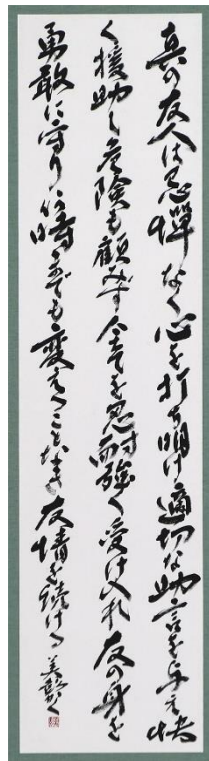 真の友人は忌憚なく心を打ち明け適切な助言を与え快
く援助し危険も顧みず全てを忍耐強く受け入れ友の身を
勇敢に守り何時までも変えることなき友情を続ける